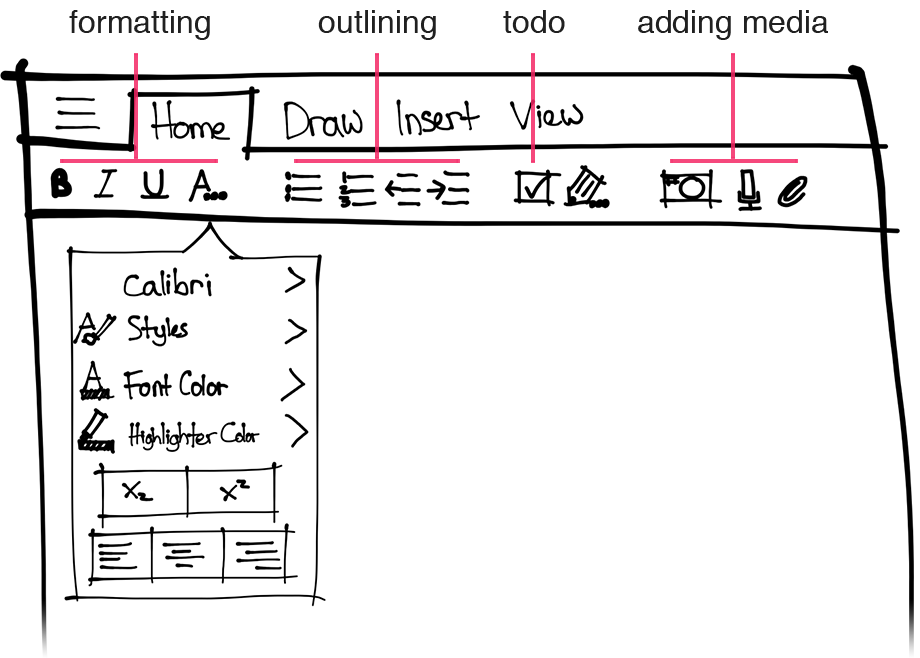 formatting outlining todo adding media
Home Draw Insert View
B I U A...
1 2 3
Calibri
A Styles
A Font Color
Highlighter Color
X2 X²